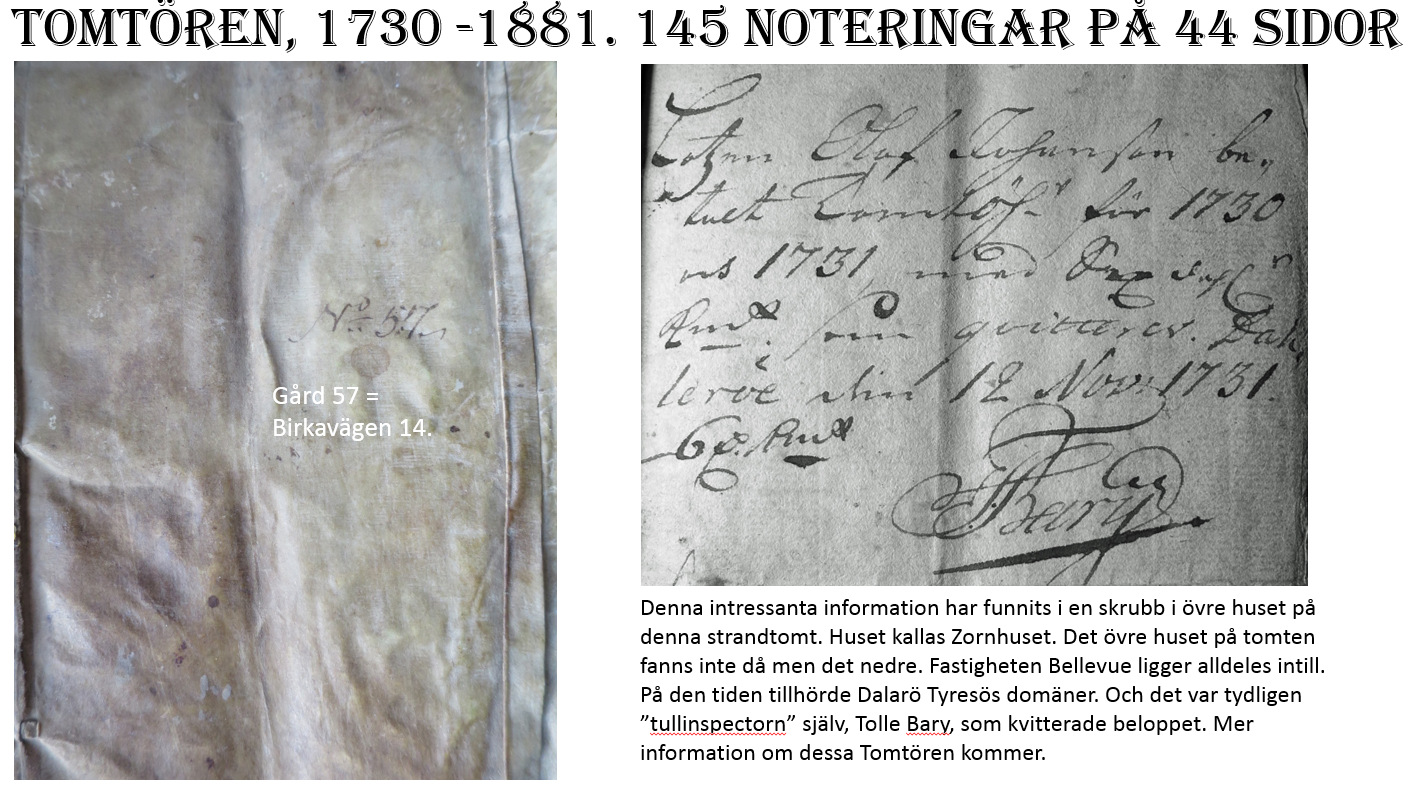 TOMTÖREN, 1730 -1881. 145 NOTERINGAR PÅ 44 SIDOR
No 57.
Gård 57 =
Birkavägen 14.
Lotzen Olof Johansson be,,
talt Tomtöhr för 1730
och 1731 med Sex dahlr
Kmt. som qvitteres. Dah,
leröe din 12 Nov: 1731.
6 D. Kmt
Bary
Denna intressanta information har funnits i en skrubb i övre huset på
denna strandtomt. Huset kallas Zornhuset. Det övre huset på tomten
fanns inte då men det nedre. Fastigheten Bellevue ligger alldeles intill.
På den tiden tillhörde Dalarö Tyresös domäner. Och det var tydligen
”tullinspectorn” själv, Tolle Bary, som kvitterade beloppet. Mer
information om dessa Tomtören kommer.